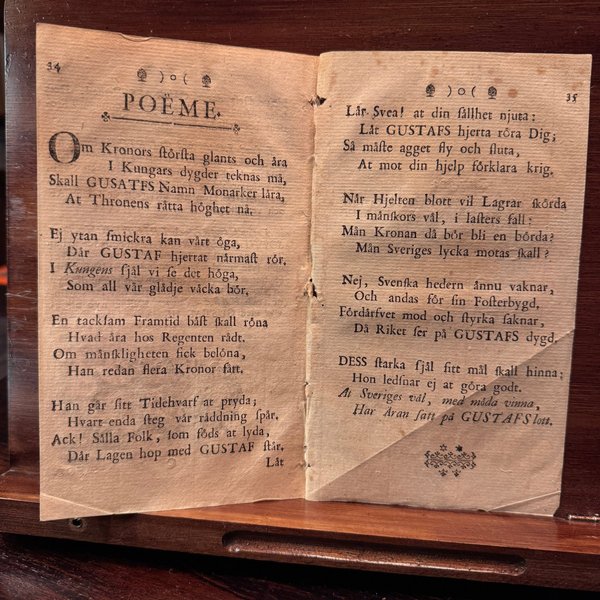 34
POËME.
Om Kronors ſtörſta glants och åra
I Kungars dygder teknas må,
Skall GUSATFS Namn Monarker låra,
At Thronens råtta höghet nå.
Ej ytan ſmickra kan vårt öga,
Dår GUSTAF hjertat nårmaſt rör.
I Kungens ſjål vi ſe det höga,
Som all vår glådje våcka bör.
En tackſam Framtid båſt ſkall röna
Hvad åra hos Regenten rådt.
Om månſkligheten fick belöna,
Han redan flera Kronor fått.
Han går ſitt Tidehvarf at pryda;
Hvart enda ſteg vår råddning ſpår.
Ack! Sålla Folk, ſom föds at lyda,
Dår Lagen hop med GUSTAF ſtår.
Låt
35
Lår Svea! at din ſållhet njuta:
Låt GUSTAFS hjerta röra Dig;
Så måſte agget fly och ſluta,
At mot din hjelp förklara krig.
Når Hjelten blott vil Lagrar ſkörda
I månſkors vål, i laſters fall:
Mån Kronan då bör bli en börda?
Mån Sveriges lycka motas ſkall?
Nej, Svenſka hedern ånnu vaknar,
Och andas för ſin Foſterbygd,
Fördårfvet mod och ſtyrka ſaknar,
Då Riket ſer på GUSTAFS dygd.
DESS ſtarka ſjål ſitt mål ſkall hinna;
Hon ledſnar ej at göra godt.
At Sveriges vål, med möda vinna,
Har Äran ſatt på GUSTAFS lott.